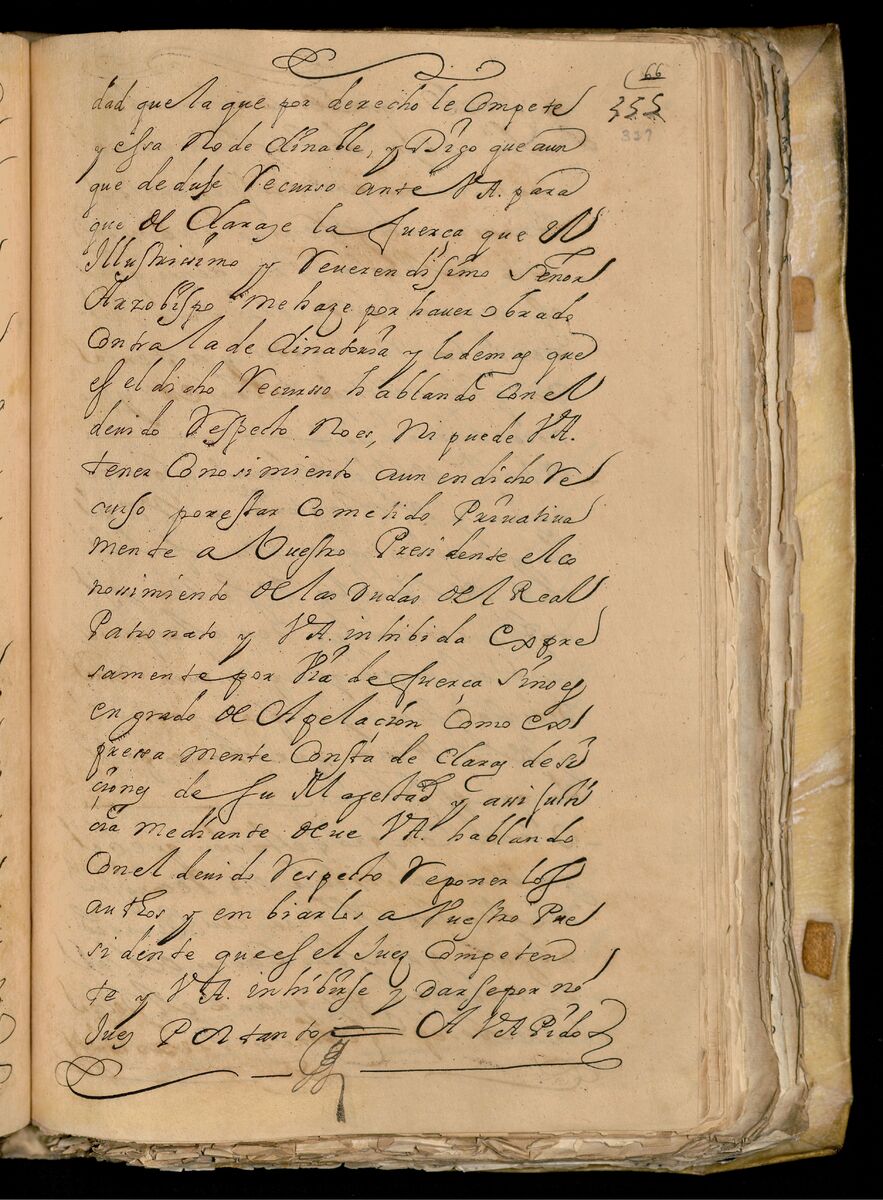 66
355
337
dad que la que por derecho le Compete
y essa No de Clinable, y Digo que aun
que deduse Recurso ante VA. para
que de Clarase la fuerça que el
Illustrissimo y Reverendissimo Señor
Arzobispo me haze por haver obrado
Contra la de Clinatoria y lo demas que
es el dicho Recurso hablando Con el
devido Respecto No es, Ni puede VA.
tener Conosimiento aun en dicho Re
curso por estar Cometido Privativa
mente a Vuestro Presidente el co
nossimiento de las Dudas del Real
Patronato y VA. inhibida expre
samente por Via de fuerca Sino es
en grado de Apelación Como ex
pressa mente Consta de Claras desi
ciones de su Magestad y assi justi
cia mediante deve VA. hablando
Con el devido Respecto Reponer los
authos y embiarlos a Vuestro Pre
sidente que es el Juez Competen
te y VA. inhibirse y Darse por no
Juez Por tanto A VA Pido